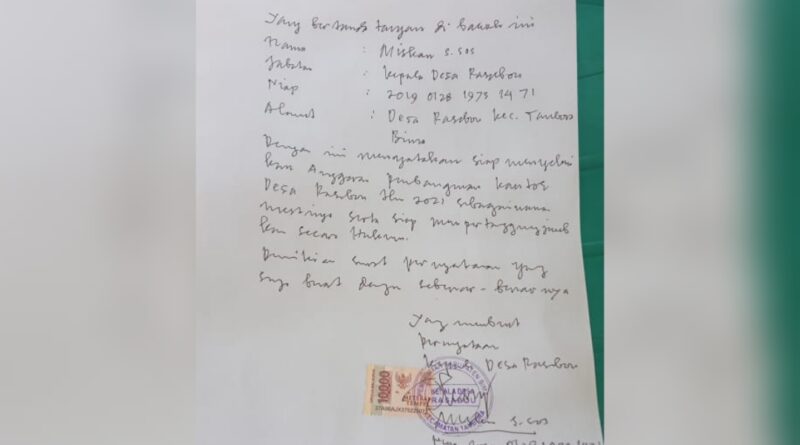 Yang bertanda tangan di bawah ini
Nama : Miskan S.Sos
Jabatan : Kepala Desa Rasabou
Niap : 2019 0128 1973 14 71
Alamat : Desa Rasabou Kec. Tambora
Bima
Dengan ini menyatakan siap menyelesai
kan Anggaran pembangunan kantor
Desa Rasabou thn 2021 sebagaimana
mestinya serta siap mempertanggungjawab
kan secara Hukum.
Demikian surat pernyataan yang
saya buat dengan sebenar-benarnya
Yang membuat
pernyataan
Kepala Desa Rasabou
10000
TEMPEL
KEPALA DESA
RASABOU
KECAMATAN TAMBORA
S.Sos